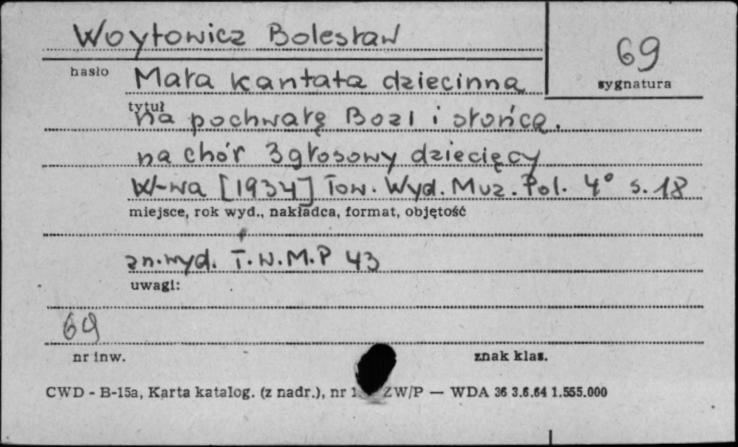 Woytowicz Bolesław
69
hasło
sygnatura
Mała kantata dziecinna
tytuł
na pochwałę Bozi i słońca.
na chór 3głosowy dziecięcy
W-wa [1934] Tow. Wyd. Muz. Pol. 4° s. 18
miejsce, rok wyd., nakładca, format, objętość
zn. wyd. T.W.M.P 43
uwagi:
69
nr inw.
znak klas.
CWD - B-15a, Karta katalog. (z nadr.), nr ZW/P — WDA 36 3.6.64 1.555.000